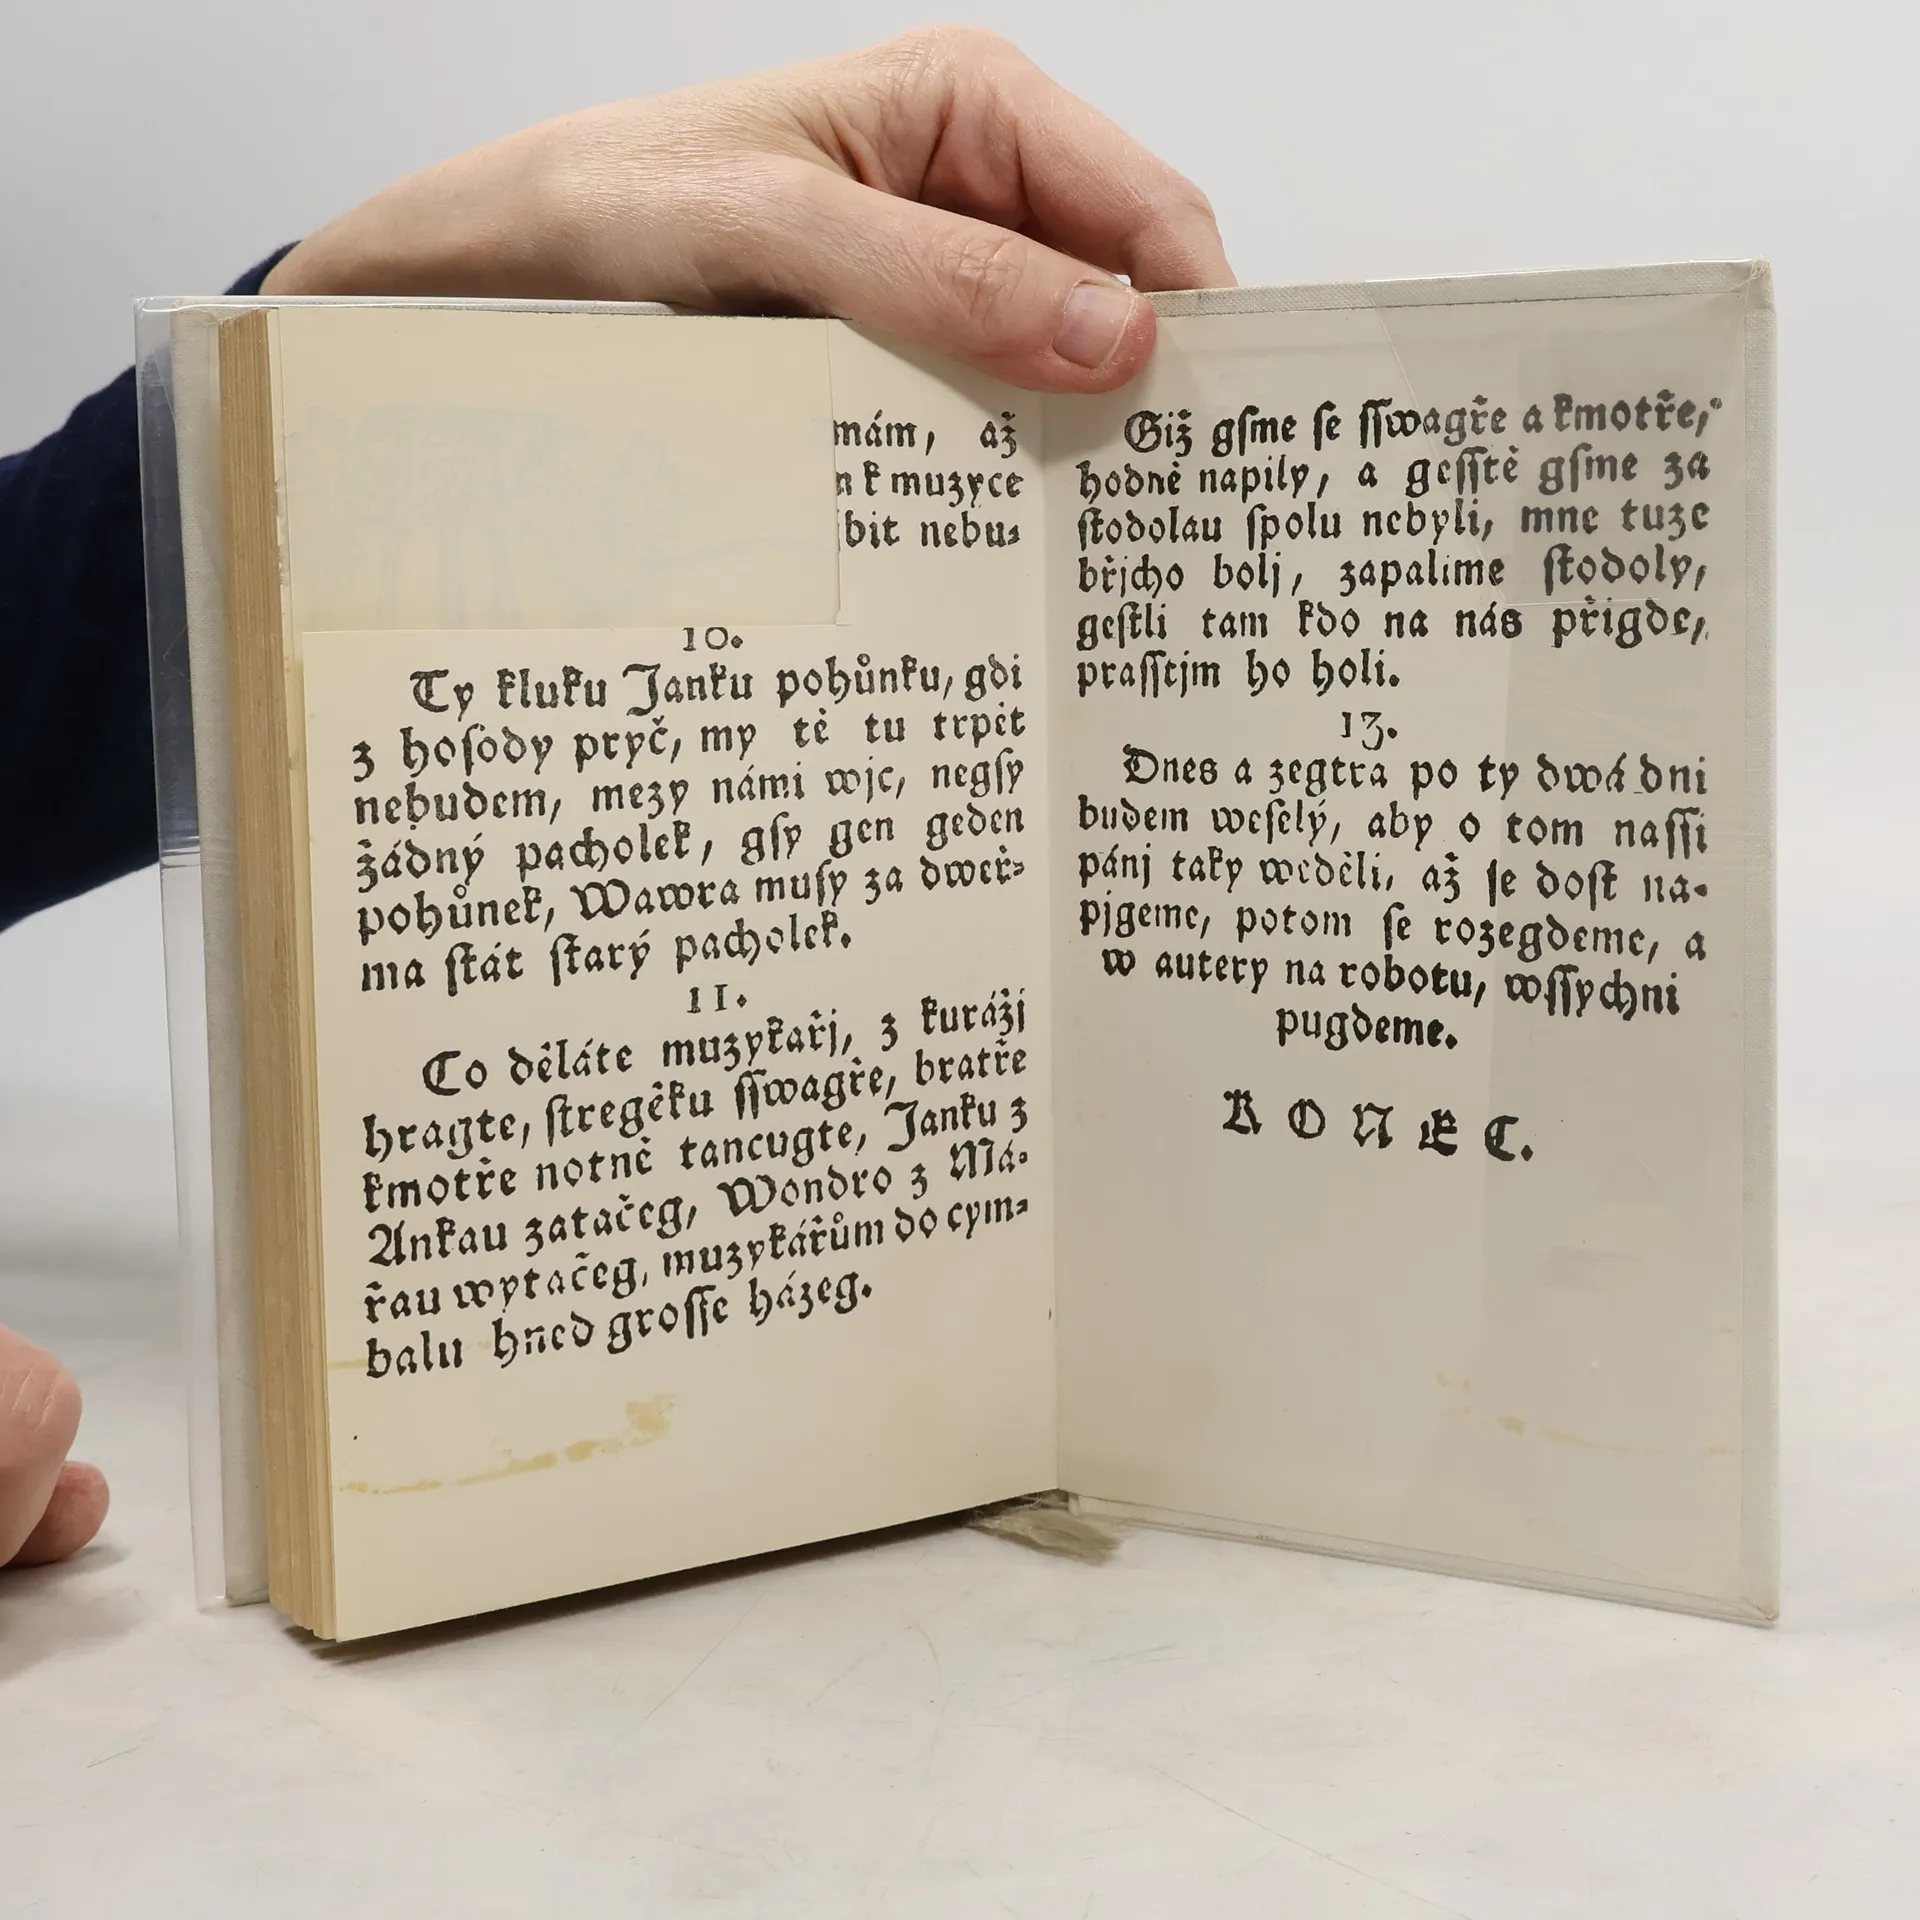 mám, až
k muzyce
bit nebu⸗
10.
Ty kluku Janku pohůnku, gdi
z hoſody pryč, my tě tu trpět
nebudem, mezy námi wjc, negſy
žádný pacholek, gſy gen geden
pohůnek, Wawra muſy za dweř⸗
ma ſtát ſtarý pacholek.
11.
Co děláte muzykařj, z kurážj
hragte, ſtregčku ſſwagře, bratře
kmotře notně tancugte, Janku z
Ankau zatačeg, Wondro z Má⸗
řau wytačeg, muzykářům do cym⸗
balu hned groſſe házeg.
Giž gſme ſe ſſwagře a kmotře,
hodně napily, a geſſtě gſme za
ſtodolau ſpolu nebyli, mne tuze
břjcho bolj, zapalime ſtodoly,
geſtli tam kdo na nás přigde,
praſſtjm ho holi.
13.
Dnes a zegtra po ty dwá dni
budem weſelý, aby o tom naſſi
pánj taky wěděli, až ſe doſt na⸗
pjgeme, potom ſe rozegdeme, a
w autery na robotu, wſſychni
pugdeme.
KONEC.